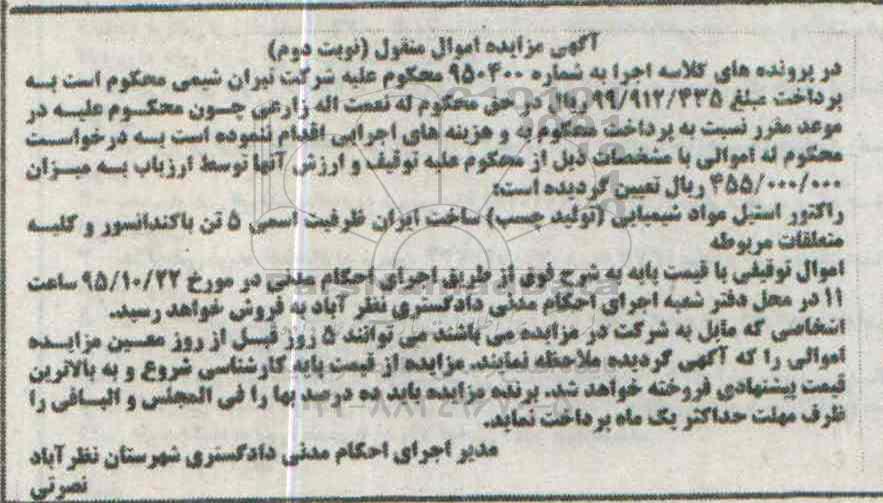 آگهی مزایده اموال منقول (نوبت دوم)
در پرونده های کلاسه اجرا به شماره ۹۵۰۴۰۰ محکوم علیه شرکت نیران شیمی محکوم است به
پرداخت مبلغ ۹۹/۹۱۲/۴۳۵ ریال در حق محکوم له نعمت اله زارعی چون محکوم علیه در
موعد مقرر نسبت به پرداخت محکوم به و هزینه های اجرایی اقدام ننموده است به درخواست
محکوم له اموالی با مشخصات ذیل از محکوم علیه توقیف و ارزش آنها توسط ارزیاب به میزان
۴۵۵/۰۰۰/۰۰۰ ریال تعیین گردیده است:
راکتور استیل مواد شیمیایی (تولید چسب) ساخت ایران ظرفیت اسمی ۵ تن باکندانسور و کلیه
متعلقات مربوطه
اموال توقیفی با قیمت پایه به شرح فوق از طریق اجرای احکام مدنی در مورخ ۹۵/۱۰/۲۲ ساعت
۱۱ در محل دفتر شعبه اجرای احکام مدنی دادگستری نظر آباد به فروش خواهد رسید.
اشخاصی که مایل به شرکت در مزایده می باشند می توانند ۵ روز قبل از روز معین مزایده
اموالی را که آگهی گردیده ملاحظه نمایند. مزایده از قیمت پایه کارشناسی شروع و به بالاترین
قیمت پیشنهادی فروخته خواهد شد. برنده مزایده باید ده درصد بها را فی المجلس و الباقی را
ظرف مهلت حداکثر یک ماه پرداخت نماید.
مدیر اجرای احکام مدنی دادگستری شهرستان نظرآباد
نصرتی